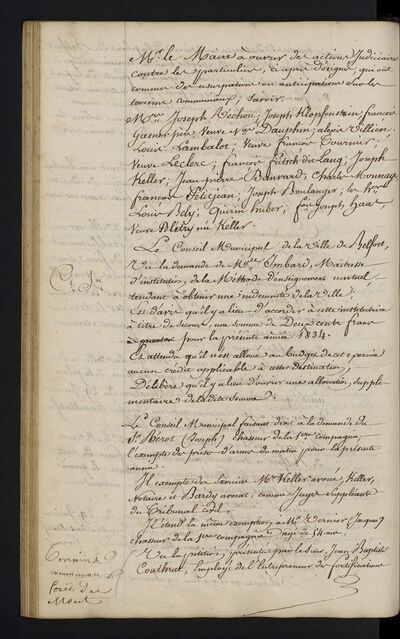 Mr. le Maire à ouvrir des actions Judiciaires
contre les particuliers, ci après désignés, qui ont
commis des usurpations ou anticipations sur les
terreins communaux, savoir:
Mrs. Joseph Joseph Klopfenstein, françois
Gasner père, Veuve Dauphin, alexis Vellien,
Louis Lambalot, Veuve françois Tournier,
Veuve Leclerc, françois fritsch du Lang, Joseph
Keller, Jean pierre Banvard, Charles Monnaye,
françois Petitjean, Joseph Boulanger, les
Louis Bdy, Quirin huber, Joseph haas,
Veuve Blétry née Keller.
Le Conseil Municipal de la Ville de Belfort,
Vu la demande de Imbard, Maitresse
d'institution, de la Méthode d'enseignement mutuel,
tendant à obtenir une indemnité de la Ville;
Est d'avis qu'il y a lieu d'accorder à cette institutrice
à titre de secours, une somme de Deux cents francs
pour la présente année 1834.
Et attendu qu'il n'est alloué au budget de cet exercice
aucun crédit applicable à cette destination,
Délibère qu'il y a lieu d'ouvrir une allocation supplé-
mentaire de ladite somme.
Le Conseil Municipal faisant droit à la demande du
Sr. Bérot (Joseph) Chasseur de la 1ere compagnie,
l'exempte des prises d'armes du matin pour la présente
année.
Il exempte des Exercices Mrs. Keller avoué, Keller,
Notaire et Bardy avocat, comme Juges Suppléants
du Tribunal civil.
Il étend la même exemption, à Mr. Vernier (Jacques)
chasseur de la 1ere compagnie âgé de 54 ans.
Vu la pétition, présentée par le Sieur Jean Baptiste
Couthrut, Employé de l'Entrepreneur des fortifications
Terreins
communaux
Forêt du
Mont